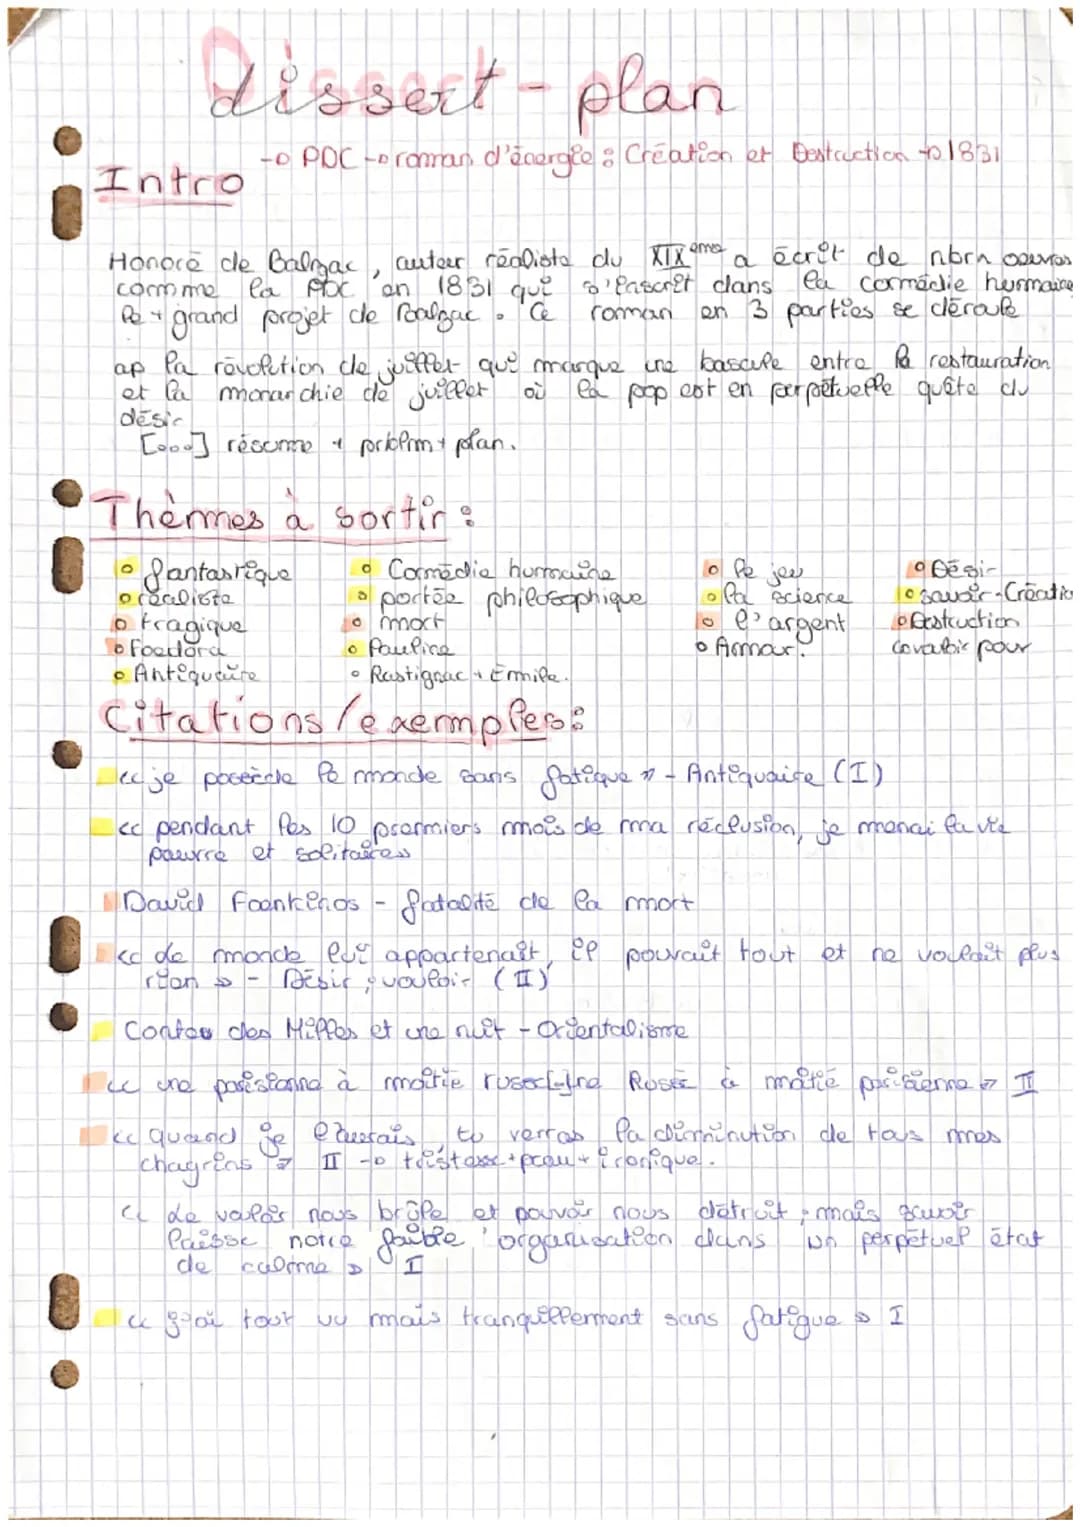 Dissert - plan
-o PDC -o roman d'énergie : Création et Destruction -o 1831
Intro
Honoré de Balzac, auteur réaliste du XIXème a écrit de nbrx oeuvres
comme la PDC en 1831 qui s'inscrit dans la comédie humaine
le + grand projet de Balzac. Ce roman en 3 parties se déroule
ap la révolution de juillet qui marque une bascule entre la restauration
et la monarchie de juillet où la pop est en perpétuelle quête du
désir
[...] résumé + problm + plan.
Thèmes à sortir :
o fantastique o Comédie humaine o le jeu o Désir
o réaliste o portée philosophique o la science o savoir - Créatio
o tragique o mort o l'argent o Destruction
o Foedora o Pauline o Amour. vouloir pour
o Antiquaire o Rastignac + Emile.
Citations / exemples :
« je possède le monde sans fatigue » - Antiquaire (I)
« pendant les 10 premiers mois de ma réclusion, je menai la vie
pauvre et solitaire »
David Foenkinos - fatalité de la mort
« Le monde lui appartenait, il pouvait tout et ne voulait plus
rien » - Désir, vouloir (II)
Contes des Milles et une nuit - Orientalisme
« une parisienne à moitié russe [-] une Russe à moitié parisienne » II
« quand je tu verras la diminution de tous mes
chagrins » II -o tristesse + peau + ironique.
« Le vouloir nous brûle et pouvoir nous détruit ; mais savoir
laisse notre faible organisation dans un perpétuel état
de calme » I
« j'ai tout vu mais tranquillement sans fatigue » I